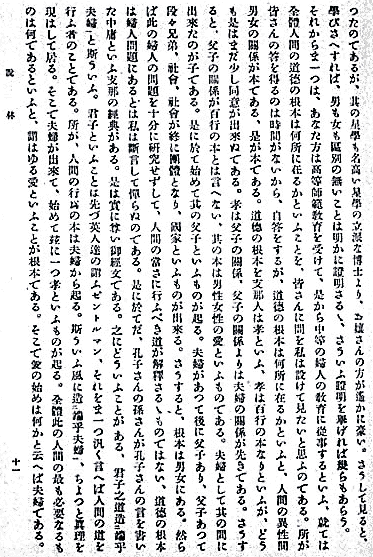 つたのであるが、其の星學も名高い星學の立派な博士より、お嬢さんの方が遙かに豪い。さうして見ると、
學びさへすれば、男も女も區別の無いことは明かに證明さるゝ、さういふ證明を擧げれば幾らもあらう。
それからま一つは、あなた方は高等師範敎育を受けて、是から中等の婦人の敎育に從事するといふ、就ては
全體人間の道德の根本は何所に在るかといふことを、皆さんに問を私は設けて見たいと思ふのである。所が
皆さんの答を得るのは時間がないから、自答をするが、道德の根本は何所に在るかといふと、人間の異性間
男女の關係が本である、是が本である。道德の根本を支那人は孝といふ、孝は百行の本なりといふが、どう
も是はまだ少し同意が出來ぬである。孝は父子の關係、父子の關係よりは夫婦の關係が先きである。さうす
ると、父子の關係が百行の本とは言へない、其の本は男性女性の愛といふものである。夫婦として其の間に
出來たのが子である。是に於て始めて其の父子といふものが起る。夫婦があつて後に父子あり、父子あつて
段々兄弟、社會、社會が終に團體となり、國家といふものが出來る。さうすると、根本は男女にある。然ら
ば此の婦人の問題を十分に硏究せずして、人間の當さに行ふべき道が解釋さるゝものではない、道德の根本
は婦人問題にあるとは私は斷言して憚らぬのである。是に於てだ、孔子さんの孫さんが孔子さんの言を書い
た中庸といふ支那の經典がある。是は實に尊い御經文である。之にどういふことがある、君子之道造二端乎
夫婦一と斯ういふ。君子といふことは先づ英人達の謂ふゼントルマン、それをま一つ汎く言へば人間の道を
行ふ者のことである。所が、人間の行爲の本は夫婦から起る。斯ういふ風に造二端乎夫婦一、ちよつと眞理を
現はして居る。そこで夫婦が出來て、始めて茲に一つ孝といふものが起る。全體此の人間の最も必要なるも
のは何であるといふと、謂はゆる愛といふことが根本である。そこで愛の始めは何かと云へば夫婦である。
說林
十一